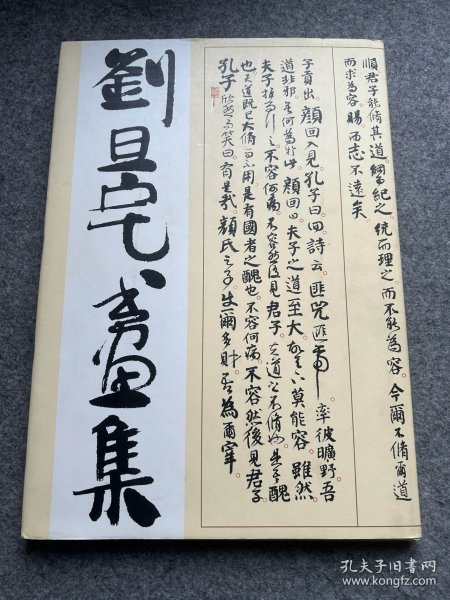 劉旦宅畫集
順君子能脩其道綱紀之統而理之而不能為容今爾不脩爾道
而求為容賜而志不遠矣
子貢出顏回入見孔子曰回詩云匪兕匪虎率彼曠野吾
道非邪吾何為於此顏回曰夫子之道至大故天下莫能容雖然
夫子推而行之不容何病不容然後見君子夫道之不脩也是吾醜
也夫道既已大脩而不用是有國者之醜也不容何病不容然後見君子
孔子欣然而笑曰有是哉顏氏之子使爾多財吾為爾宰
孔夫子旧书网
www.kongfz.com